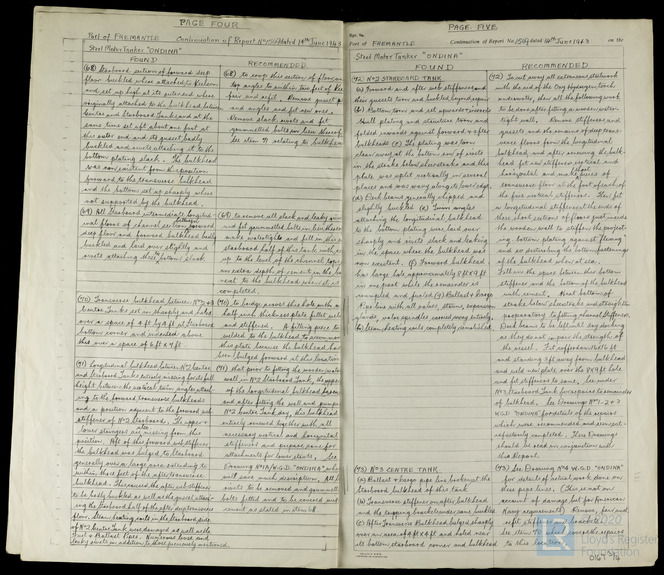 PAGE FOUR
Port of FREMANTLE Continuation of Report No 1547 dated 14th June 1943
Steel Motor Tanker "ONDINA"
FOUND
RECOMMENDED
(68) Starboard section of forward deep
floor buckled where attached to Keelson
and set up high at its outer end where
originally attached to the bulkhead between
Centre and Starboard Tanks and at the
same time set aft about one foot at
this outer end and its gusset badly
buckled and rivets attaching it to the
bottom plating slack. The bulkhead
was non existent from the position
forward to the transverse bulkhead
and the bottom set up sharply where
not supported by the bulkhead.
(68) To crop this section of floor
top angle to within two feet of Keelson
fair and refit. Renew gusset
and angles and fit new
Remove slack rivets and fit
grummetted bolts in lieu thereof
See item 91 relating to bulkhead
(69) All Starboard intermediate longitud-
inal floors of channel section between forward
deep floor and forward bulkhead badly
buckled and laid over slightly and
rivets attaching these to bottom slack
(69) To remove all slack and leaky rivets
and fit grummetted bolts in lieu thereof
make watertight and fill in the
starboard half of this tank with
up to the level of the channel tops
an extra depth of cement in the
next to the bulkhead when it is
completed.
(70) Transverse bulkhead between Nos 2 & 3
Centre Tanks set in sharply and holed
over a space of 4 ft by 2 ft at Starboard
bottom corner and indented above
this over a space of 6 ft x 4 ft.
(70) To bridge across this hole with a
half inch thick set plate fitted
and stiffened. A fitting piece to
welded to the bulkhead to accommodate
this plate because the bulkhead has
been bulged forward at this location
(91) Longitudinal bulkhead between No 2 Centre
and Starboard Tanks entirely missing for its full
height between the vertical turn angles attach-
ing to the forward transverse bulkheads
and a position adjacent to the forward web
stiffener of No 2 Starboard. The upper &
lower stringers are missing from this
position. Aft of this forward web stiffener
the bulkhead was bulged to Starboard
generally over a large area extending to
within three feet of the after transverse
bulkhead. This caused the after web stiffener
to be badly buckled as well as the gusset attach-
ing the starboard half of the after deep transverse
floor. Steam heating coils in the starboard side
of No 2 Centre Tank were damaged as well as the
Fuel & Ballast Pipes. Numerous loose and
leaky rivets in addition to those previously mentioned.
(91) That prior to fitting the wooden water
wall in No 2 Starboard Tank, the upper
of the longitudinal bulkhead
and after fitting the wall and pumping
No 2 Centre Tank dry, this bulkhead
entirely renewed together with all
necessary vertical and horizontal
stiffeners and prepare same for
attachments for lower rivets. See
Drawing No 1A/W.G.D. "ONDINA" which
will save much description. All
rivets to be removed and grummetted
bolts fitted and to be covered
cement as stated in item 68
PAGE FIVE
Port of FREMANTLE Continuation of Report No 1547 dated 14th June 1943 on the
Steel Motor Tanker "ONDINA"
FOUND
RECOMMENDED
(92) No 2 STARBOARD TANK
(a) Forward and after web stiffeners and
their gussets torn and buckled beyond repair
(b) Bottom torn and set upwards inwards
Shell plating and structure torn and
folded inwards against forward & after
bulkheads (c) The plating was torn
clear away at the bottom row of rivets
in the strake below sheerstrake and this
plate was split vertically in several
places and was wavy along its lower edge
(d) Deck beams generally chipped and
slightly buckled (e) Turn angles
attaching the longitudinal bulkhead
to the bottom plating were laid over
sharply and rivets slack and leaking
in the space where the bulkhead was
non existent. (f) Forward bulkhead
has large hole approximately 8 ft x 4 ft
in one part while the remainder is
crumpled and fluted (g) Ballast & Cargo
Pipe lines with all joints, strums, expansion
glands, valve spindles carried away entirely.
(h) Steam heating coils completely demolished
(92) To cut away all extraneous steelwork
with the aid of the Oxy Hydrogen torch
underwater, then all the following work
to be done after fitting a wooden water-
tight wall. Remove stiffeners and
gussets and the remains of deep trans-
verse floors from the longitudinal
bulkhead and after renewing the bulk-
head fit new stiffeners vertical and
horizontal and make short pieces of
transverse floor at the foot of each of
the first vertical stiffeners. Then fit
a longitudinal stiffener at the ends of
these short sections of floors just inside
the wooden wall to stiffen the project-
ing bottom plating against flexing
and so disturbing the bottom fastenings
of the bulkhead when at sea.
Fill in the space between this bottom
stiffener and the bottom of the bulkhead
with cement. Heat bottom of
strake below sheerstrake and straighten
preparatory to fitting external stiffener.
Deck beams to be left until dry docking
as they do not impair the strength of
the vessel. Fit cofferdam 10 ft x 6 ft
and standing 2 ft away from bulkhead
and weld new plate over the 8 x 4 ft hole
and fit stiffeners to same. See under
No 1 Starboard Tank for repairs to remainder
of bulkhead. See Drawings Nos 1 - 2 & 3
W.G.D. "ONDINA" for details of the repairs
which were recommended and were sat-
isfactorily completed. These Drawings
should be read in conjunction with
this Report.
(93) No 3 CENTRE TANK
(a) Ballast & Cargo pipe line broken at the
starboard bulkhead of this tank
(b) Transverse stiffener on after bulkhead
and the topping bracket under same buckled
(c) After Transverse Bulkhead bulged sharply
over an area of 4 ft x 4 ft and holed near
its bottom starboard corner and bulkhead
(93) See Drawing No 4 W.G.D. "ONDINA"
for details of actual work done on
these pipe lines. (This is not on
account of damage but for American
Navy requirements) Remove, fair and
refit stiffener & bracket
See item 70 which covers the repairs
to this location.
© 2020
Lloyd's Register
Foundation
0167 7/14